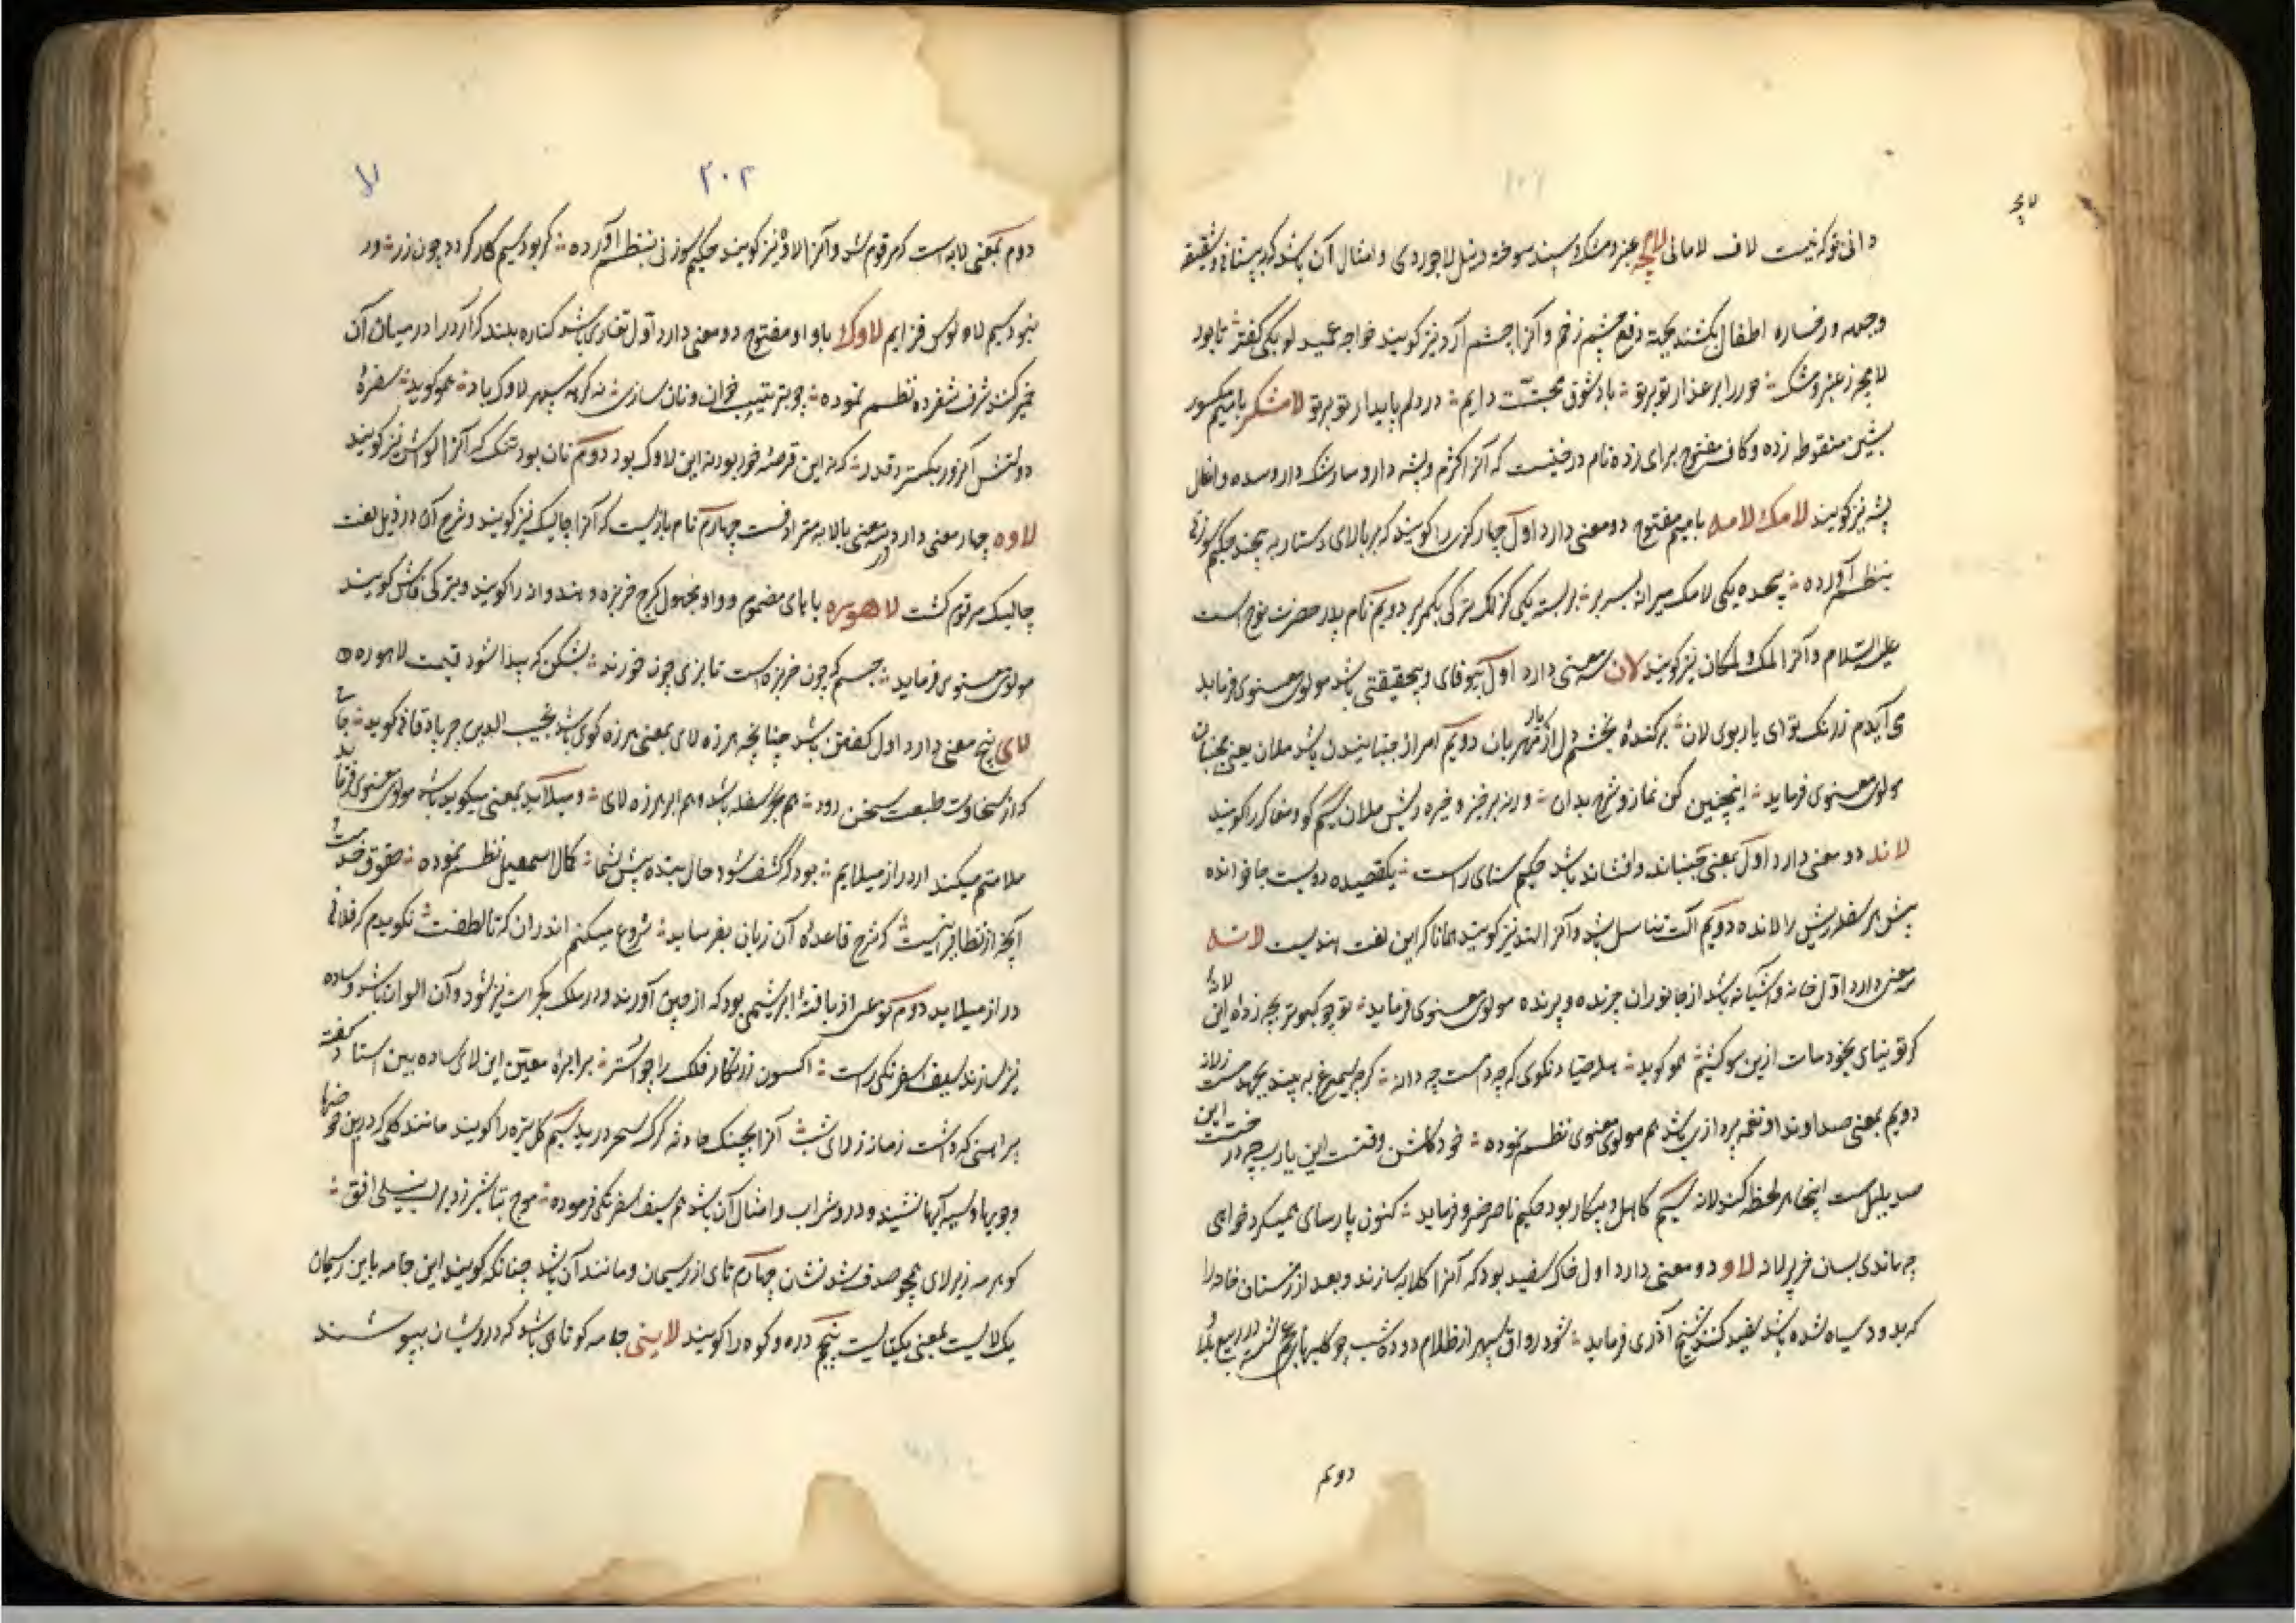 لامچه
دانی تو که نیست لاف لامانی لامچه عنبر و مشک و سپند سوخته و نیل لاجوردی و امثال آن باشد که بر پیشانی و شقیقه
و جبهه و رخساره اطفال بکشند بجهة دفع چشم زخم و آنرا چشم آرو نیز گویند خواجه عمید لوبکی گفته تا بود
لامچه ز عنبر و مشک حور را بر عذار تو بر تو باد شوق محبتت دایم در دلم پایدار تو بر تو لامشکر با میم مکسور
بشین منقوطه زده و کاف مفتوح برای زده نام درختیست که آنرا کژم و پشه دارو سارشک دارو سده و اغال
پشه نیز گویند لامک لامه با میم مفتوح دو معنی دارد اول چارگزی را گویند که بر بالای دستار به پیچند حکیم سوزنی
بنظم آورده پیچده یکی لامک میرانه بسر بر بربسته یکی گزلک ترکی بکمر بر دویم نام پدر حضرت نوح است
علیه السلام و آنرا لمک و لمکان نیز گویند لان سه معنی دارد اول بیوفای و بیحقیقتی باشد مولوی معنوی فرماید
می آیدم ز رنگ تو ای یار بوی لان برکنده بخشم دل از یار مهربان دویم امر از جنبانیدن باشد ملان یعنی مجنبان
مولوی معنوی فرماید اینچنین کن نماز و شرح بدان ورنه برخیز و خیره ریش ملان سیم گو و مغاک را گویند
لاند دو معنی دارد اول بمعنی جنباند و افشاند باشد حکیم سنای راست یکقصیده دویست جا خوانده
پیش هر سفله ریش را لانده دویم آلت تناسل باشد و آنرا لند نیز گویند همانا که این لغت هندیست لانه
سه معنی دارد اول خانه و آشیانه باشد از جانوران چرنده و پرنده مولوی معنوی فرماید تو چو کبوتر بچه زاده این لانه
گر تو نیای بخودمات ازین سو کشیم هموگوید هله صیاد نگوی که چه دامست چه دانه که چو سیمرغ به بیند بجهد مست ز لانه
دویم بمعنی صدا و ندا و نغمه پردازی باشد هم مولوی معنوی نظم نموده خود گلشن وقتست این یارب چه درختست این
صد بلبل مست اینجا هر لحظه کند لانه سیم کاهل و بیکار بود حکیم ناصر خسرو فرماید کنون پارسای همیکرد خواهی
چه ماندی بسان خر پیر لانه لاو دو معنی دارد اول خاک سفید بود که آنرا گلابه سازند و بعد از زمستان خانه را
که بدود سیاه شده باشد سفید کنند شیخ آذری فرماید شود رواق سپهر از ظلام دوده شب چو کلبها
دویم
۲۰۲
لا
دوم بمعنی لابه است که مرقوم شد و آنرا لاوه نیز گویند حکیم سوزنی بنظم آورده گر بود سیم کار گردد چون زر ور
نبود سیم لاو لوس فزایم لاوک با واو مفتوح دو معنی دارد اول تغاری باشد کناره بلند که آرد را در میان آن
خمیر کنند شرف شفروه نظم نموده چو بترتیب خوان و نان سازی نه گره سپهر لاوک باد هموگوید سفرهٔ
دولتش اگر زور بگسترد قدر گرنه این قرصه خور بودنه این لاوک بود دوم نان بود تنک که آنرا لواش نیز گویند
لاوه چهار معنی دارد در سه معنی با لابه مترادفست چهارم نام بازیست که آنرا چالیک نیز گویند و شرح آن در ذیل لغت
چالیک مرقوم گشت لاهوره با هاى مضموم و واو مجهول کرچ خربزه و هندوانه را گویند و بترکی قاش گویند
مولوی معنوی فرماید جسم که چون خربزه است تا نبری چون خورند بشکن که پیدا شود قیمت لاهوره
لای پنج معنی دارد اول گفتن باشد چنانچه هرزه لای بمعنی هرزه گوی باشد نجیب الدین جرباذقانی گوید جای
که از سخاوت طبعت سخن رود هم بحر سفله باشد و هم ابر هرزه لای و میلاید بمعنی میگوید باشد مولوی معنوی فرماید
ملامتم میکند ار دراز میلایم بود که کشف شود حال بنده پیش شما کمال اسمعیل نظم نموده حقوق خدمت
آنچه از تظاهر آنست که شرح قاعده آن زبان بفرساید شروع میکنم اندران که تا لطفت نگویدم که فلانی
دراز میلاید دوم نوعی از بافتهٔ ابریشمی بود که از چین آورند و در ملک گجرات نیز شود و آن الوان باشد و ساده
نیز سازند سیف اسفرنگی راست اکسون زرنگار فلک را جو استر برابره معین این لای ساده بین استاد گفته
پیراهنی که داشت زمانه ز لای شب آنرا بچنگ حادثه گرگ سحر درید سیم گل تیره را گویند مانند گلی که در بن حوضها
و جویها و لسیه آبها نشیند و درد شراب و امثال آن باشد هم سیف اسفرنگی فرموده موج تباشیر زد بر لب نیلی افق
گوهر مه زیر لای همچو صدف شد نشان چهارم تای از ریسمان و مانند آن باشد چنانکه گویند این جامه باین ریسمان
یک لایست بمعنی یکتایست پنجم دره و کوه را گویند لاینی جامه کوتاهی باشد که درویشان بپوشند